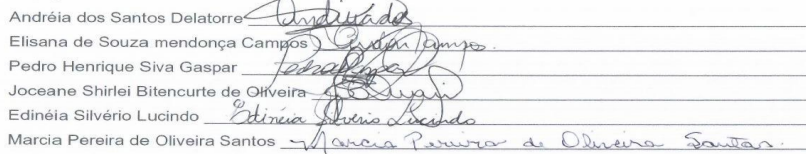 Andréia dos Santos Delatorre
Elisana de Souza mendonça Campos Campos.
Pedro Henrique Siva Gaspar
Joceane Shirlei Bitencurte de Oliveira
Edinéia Silvério Lucindo Edinéia Silverio Lucindo
Marcia Pereira de Oliveira Santos Marcia Pereira de Oliveira Santos.